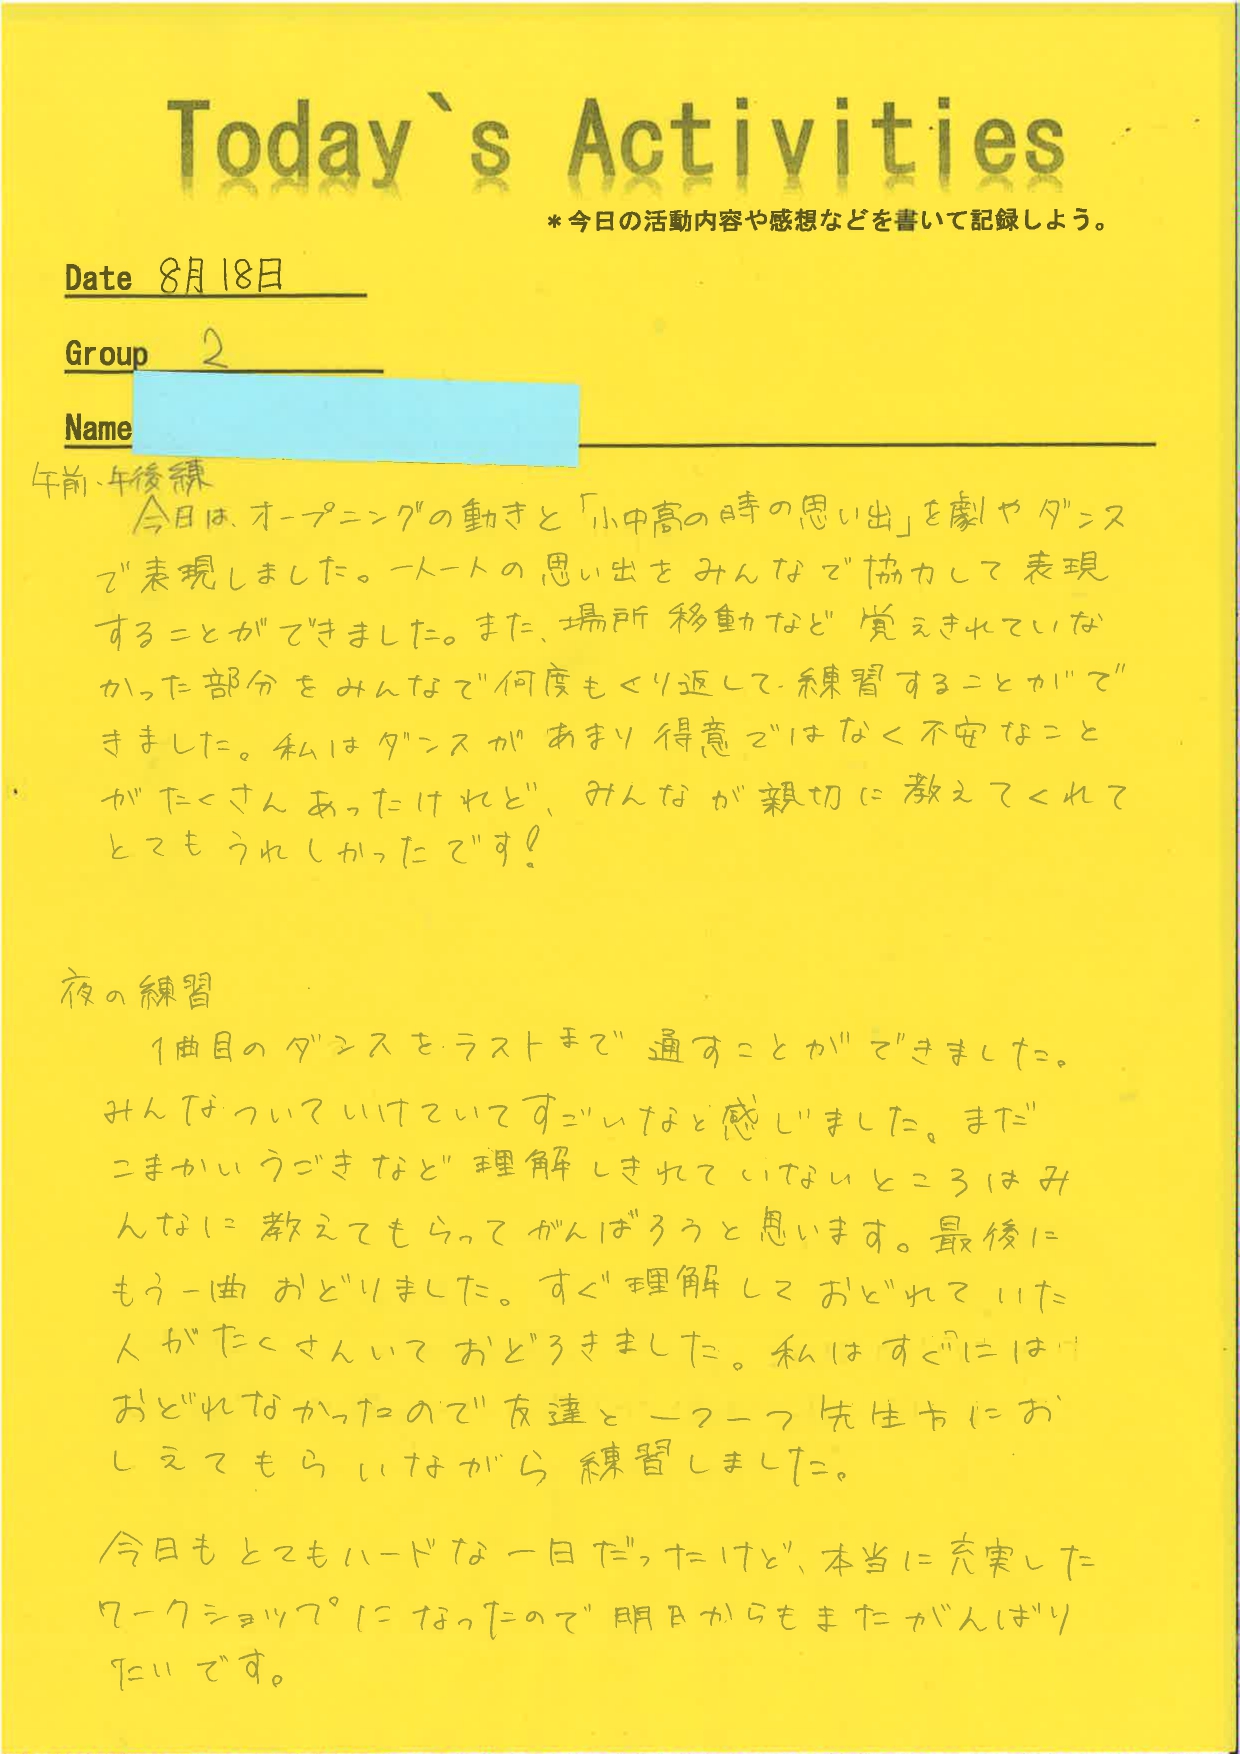 Today`s Activities
＊今日の活動内容や感想などを書いて記録しよう。
Date 8月18日
Group 2
Name
午前、午後練
今日は、オープニングの動きと「小中高の時の思い出」を劇やダンス
で表現しました。一人一人の思い出をみんなで協力して表現
することができました。また、場所移動など覚えきれていな
かった部分をみんなで何度もくり返して、練習することがで
きました。私はダンスがあまり得意ではなく不安なこと
がたくさんあったけれど、みんなが親切に教えてくれて
とてもうれしかったです!
夜の練習
1曲目のダンスをラストまで通すことができました。
みんなついていけていてすごいなと感じました。まだ
こまかいうごきなど理解しきれていないところはみ
んなに教えてもらってがんばろうと思います。最後に
もう一曲おどりました。すぐ理解しておどれていた
人がたくさんいておどろきました。私はすぐには
おどれなかったので友達と一つ一つ先生方にお
しえてもらいながら練習しました。
今日もとてもハードな一日だったけど、本当に充実した
ワークショップになったので明日からもまたがんばり
たいです。